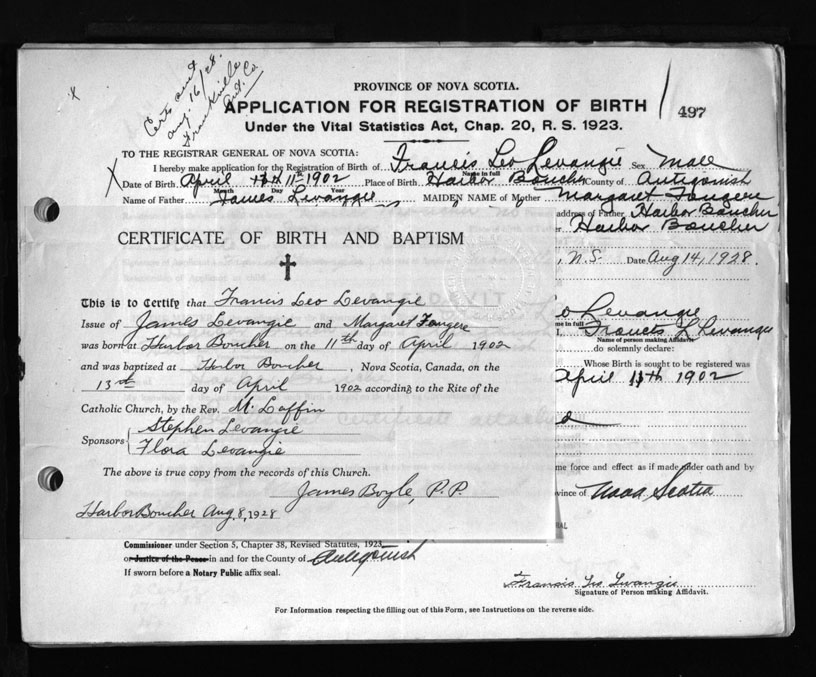 Certs sent
Aug. 16/28.
Frankville
Ant. Co
x
PROVINCE OF NOVA SCOTIA.
APPLICATION FOR REGISTRATION OF BIRTH
497
Under the Vital Statistics Act, Chap. 20, R. S. 1923.
TO THE REGISTRAR GENERAL OF NOVA SCOTIA:
I hereby make application for the Registration of Birth of Francis Leo Levangie Sex Male
Name in full
X Date of Birth April 11th 1902 Place of Birth Harbor Boucher County of Antigonish
Month Day Year
Name of Father James Levangie MAIDEN NAME of Mother Margaret Fougere
address of Father Harbor Boucher
r Harbor Boucher
, N.S. Date Aug 14, 1928.
CERTIFICATE OF BIRTH AND BAPTISM
This is to Certify that Francis Leo Levangie
Issue of James Levangie and Margaret Fougere
was born at Harbor Boucher on the 11th day of April 1902
and was baptized at Harbor Boucher, Nova Scotia, Canada, on the
13th day of April 1902 according to the Rite of the
Catholic Church, by the Rev. M. Laffin
Sponsors { Stephen Levangie
Flora Levangie
The above is true copy from the records of this Church.
James Boyle, P.P.
Harbor Boucher Aug 8, 1928
eo Levangie
me in full
I, Francis L Levangie
Name of person making Affidavit.
do solemnly declare:
Whose Birth is sought to be registered was
April 11th 1902
me force and effect as if made under oath and by
vince of Nova Scotia
Commissioner under Section 5, Chapter 38, Revised Statutes, 1923,
or Justice of the Peace in and for the County of Antigonish
If sworn before a Notary Public affix seal.
Francis Leo Levangie
Signature of Person making Affidavit.
For Information respecting the filling out of this Form, see Instructions on the reverse side.